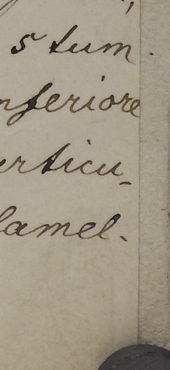 5 tum
nferiore
erticu-
lamel.